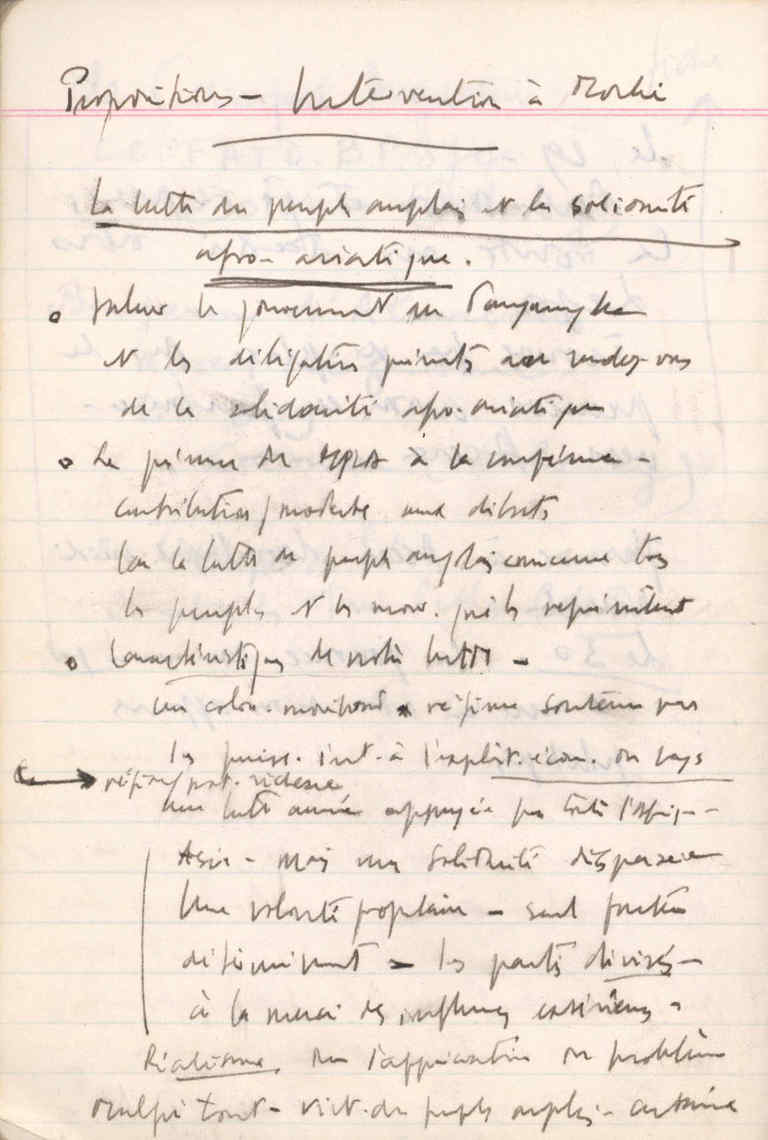 Propositions – Intervention à Moshi
La lutte du peuple angolais et la solidarité
afro-asiatique.
Saluer le gouvernement du Tanganyka
et les délégations présentes au rendez-vous
de la solidarité afro-asiatique
La présence du MPLA à la conférence –
contribution modeste aux débats
Car la lutte du peuple angolais concerne tous
les peuples et les mouv. qui les représentent
Caractéristiques de notre lutte –
Un colon. moribond régime soutenu par
les puiss. int. à l'exploit. écon. du pays
Une lutte armée appuyée par toute l'Afriq. –
Asie – mais une solidarité dispersée
Une volonté populaire – seul facteur
déterminant – les partis divisés –
à la merci des influences extérieures –
Réalisme dans l'appréciation du problème
Malgré tout – vict. du peuple angolais – certaine